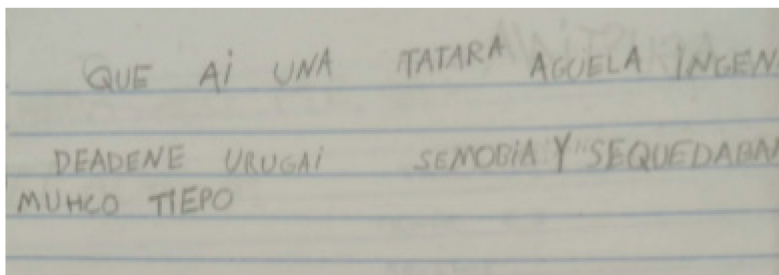 QUE Ai UNA TATARA AGUELA INGEN
DEADENE URUGAi SEMOBiA Y SEQUEDABA
MUHCO TIEPO